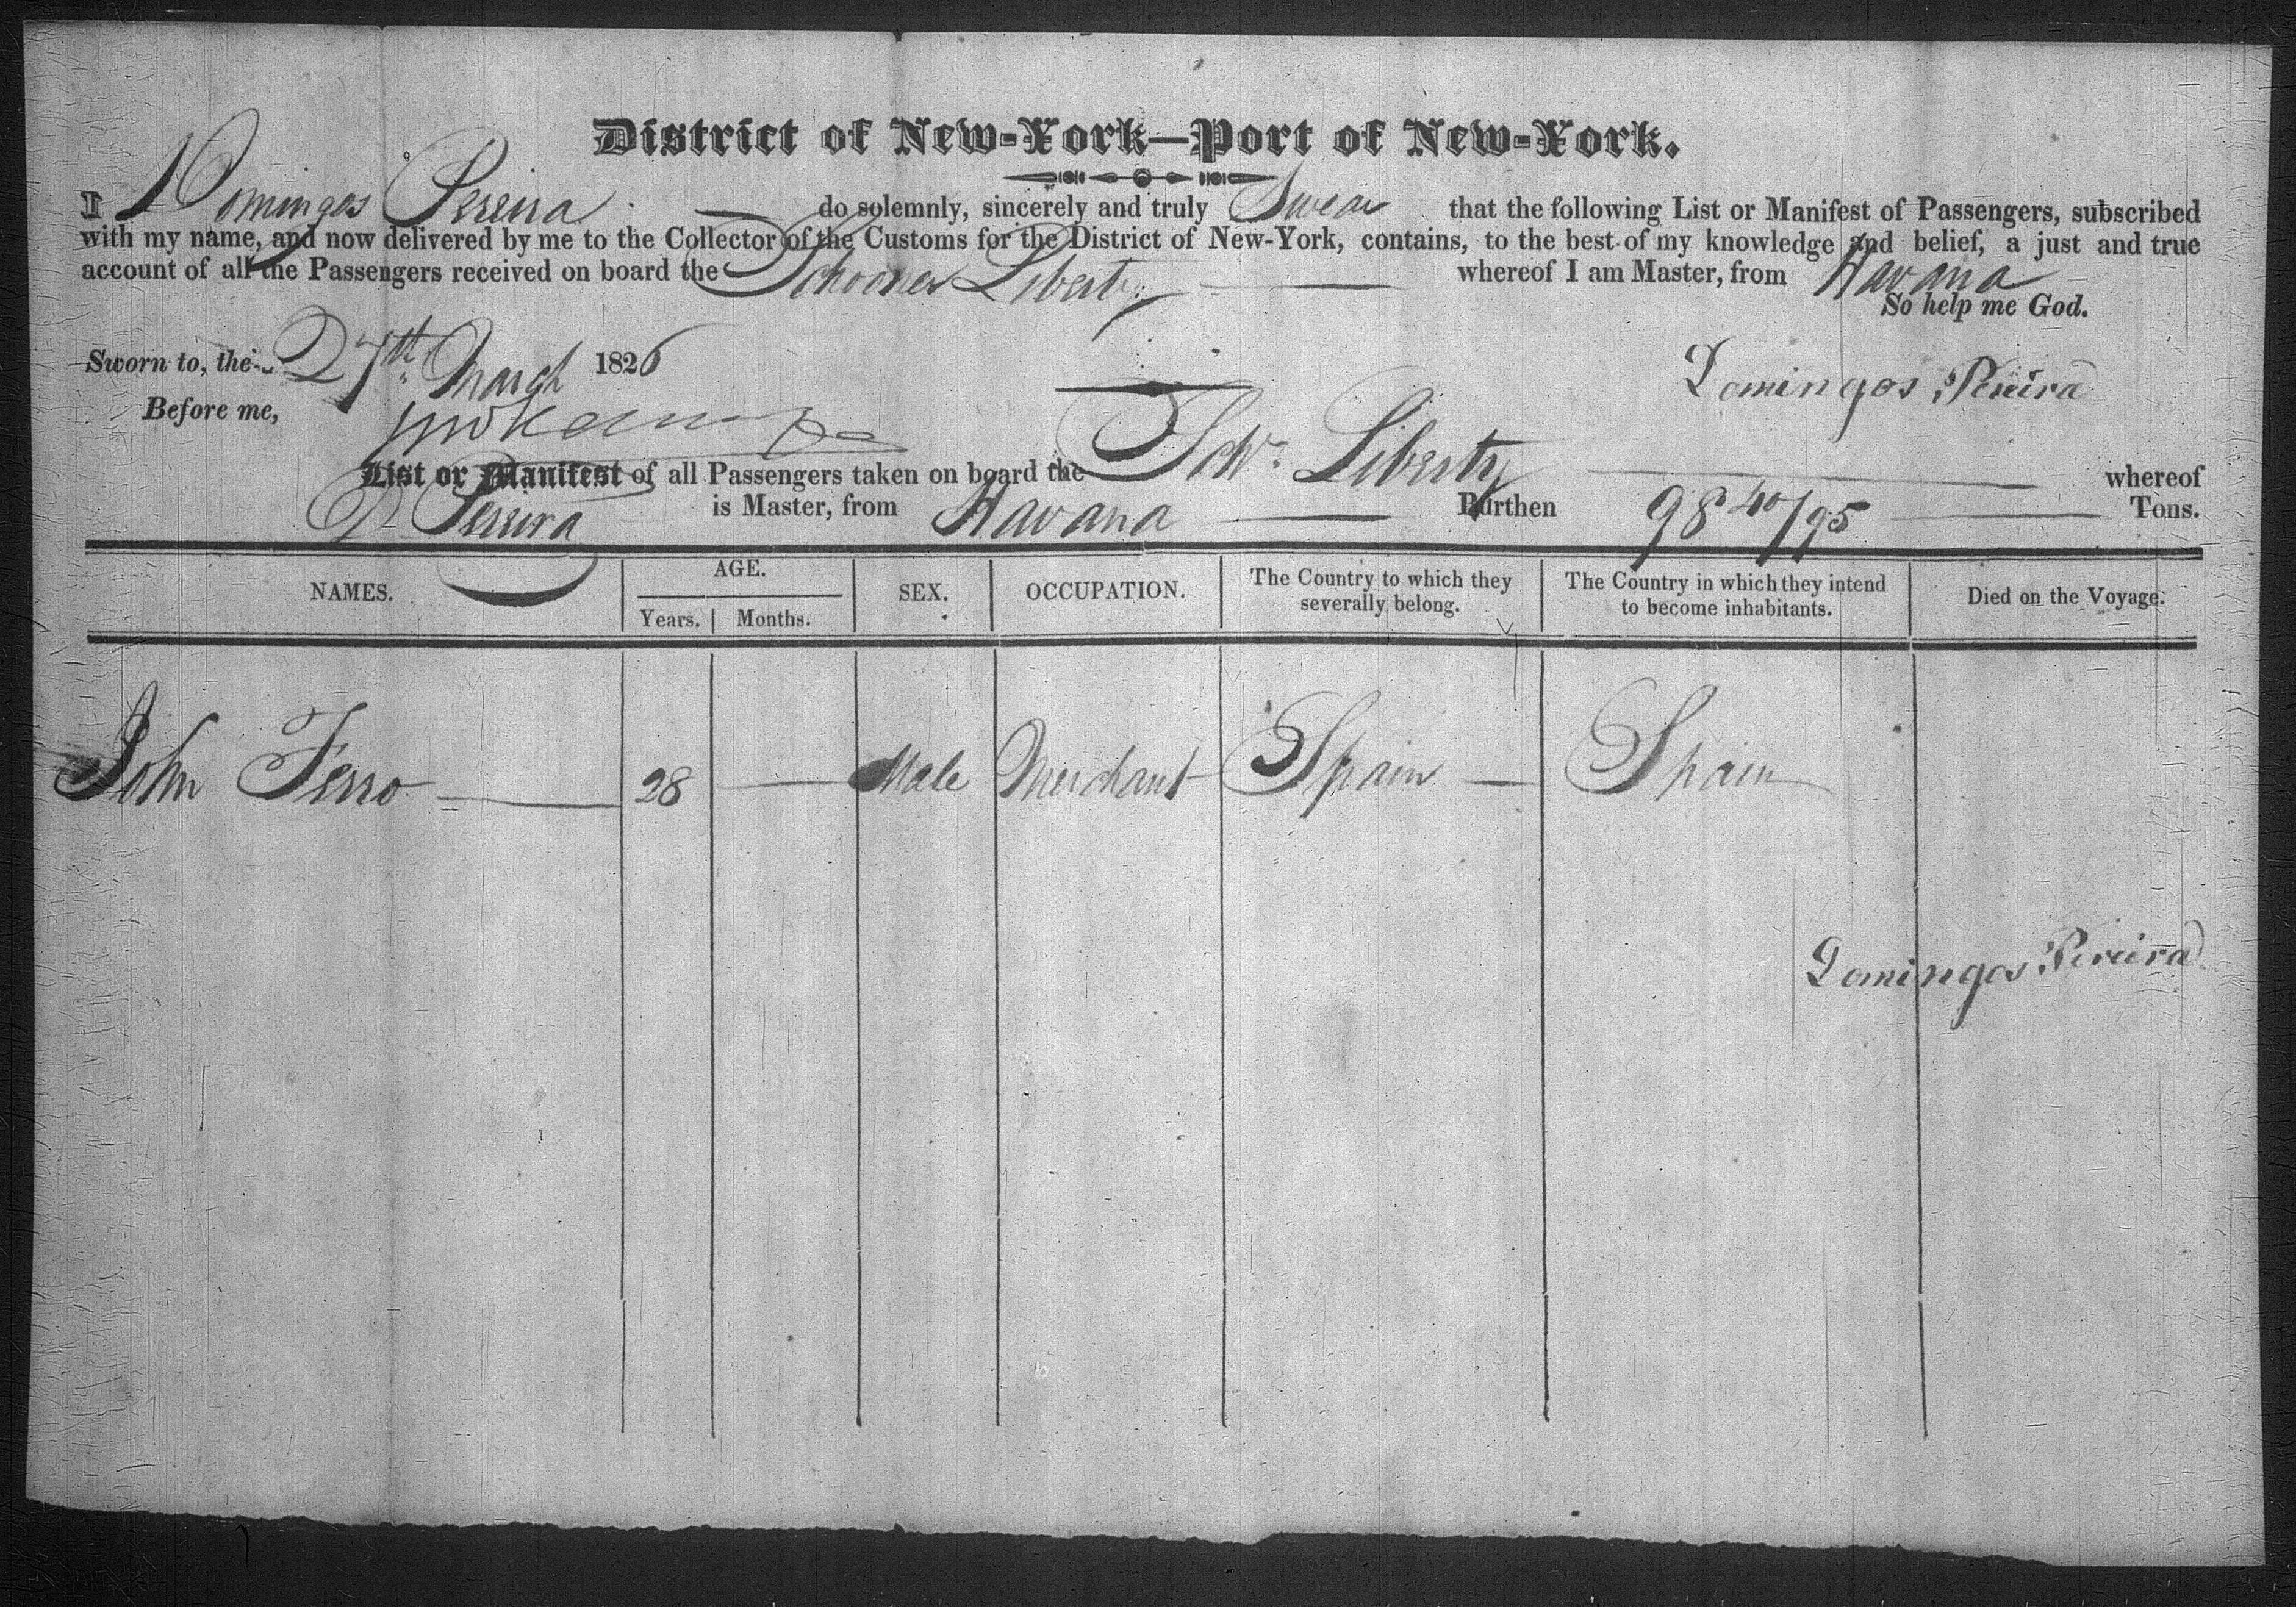 District of New-York—Port of New-York.
I Domingos Pereira do solemnly, sincerely and truly Swear that the following List or Manifest of Passengers, subscribed
with my name, and now delivered by me to the Collector of the Customs for the District of New-York, contains, to the best of my knowledge and belief, a just and true
account of all the Passengers received on board the Schooner Liberty whereof I am Master, from Havana
So help me God.
Sworn to, the 27th March 1826
Domingos Pereira
Before me,
List or Manifest of all Passengers taken on board the Schr. Liberty whereof
D Pereira is Master, from Havana Burthen 98 40/95 Tons.
NAMES. AGE. SEX. OCCUPATION. The Country to which they severally belong. The Country in which they intend to become inhabitants. Died on the Voyage.
Years. Months.
John Ferro 28 Male Merchant Spain Spain
Domingos Pereira